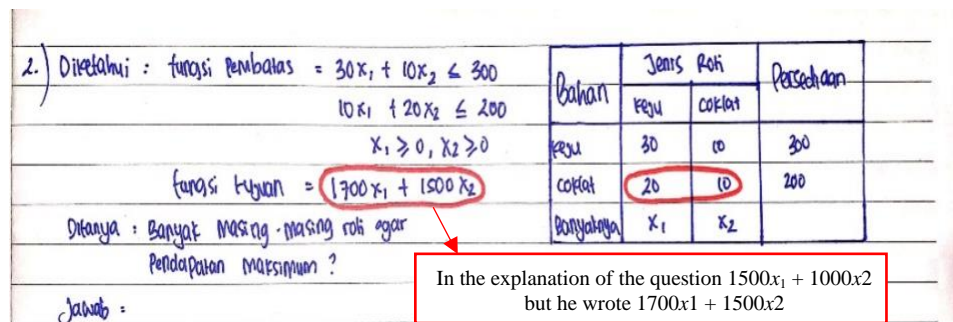 2.) Diketahui : fungsi Pembatas = 30x₁ + 10x₂ ≤ 300
10x₁ + 20x₂ ≤ 200
x₁ ≥ 0, x₂ ≥ 0
fungsi tujuan = 1700x₁ + 1500x₂
Ditanya : Banyak Masing-masing roti agar
Pendapatan Maksimum ?
Jawab :
Bahan Jenis Roti Persediaan
keju coklat
keju 30 10 300
coklat 20 10 200
Banyaknya x₁ x₂
In the explanation of the question 1500x₁ + 1000x2
but he wrote 1700x1 + 1500x2